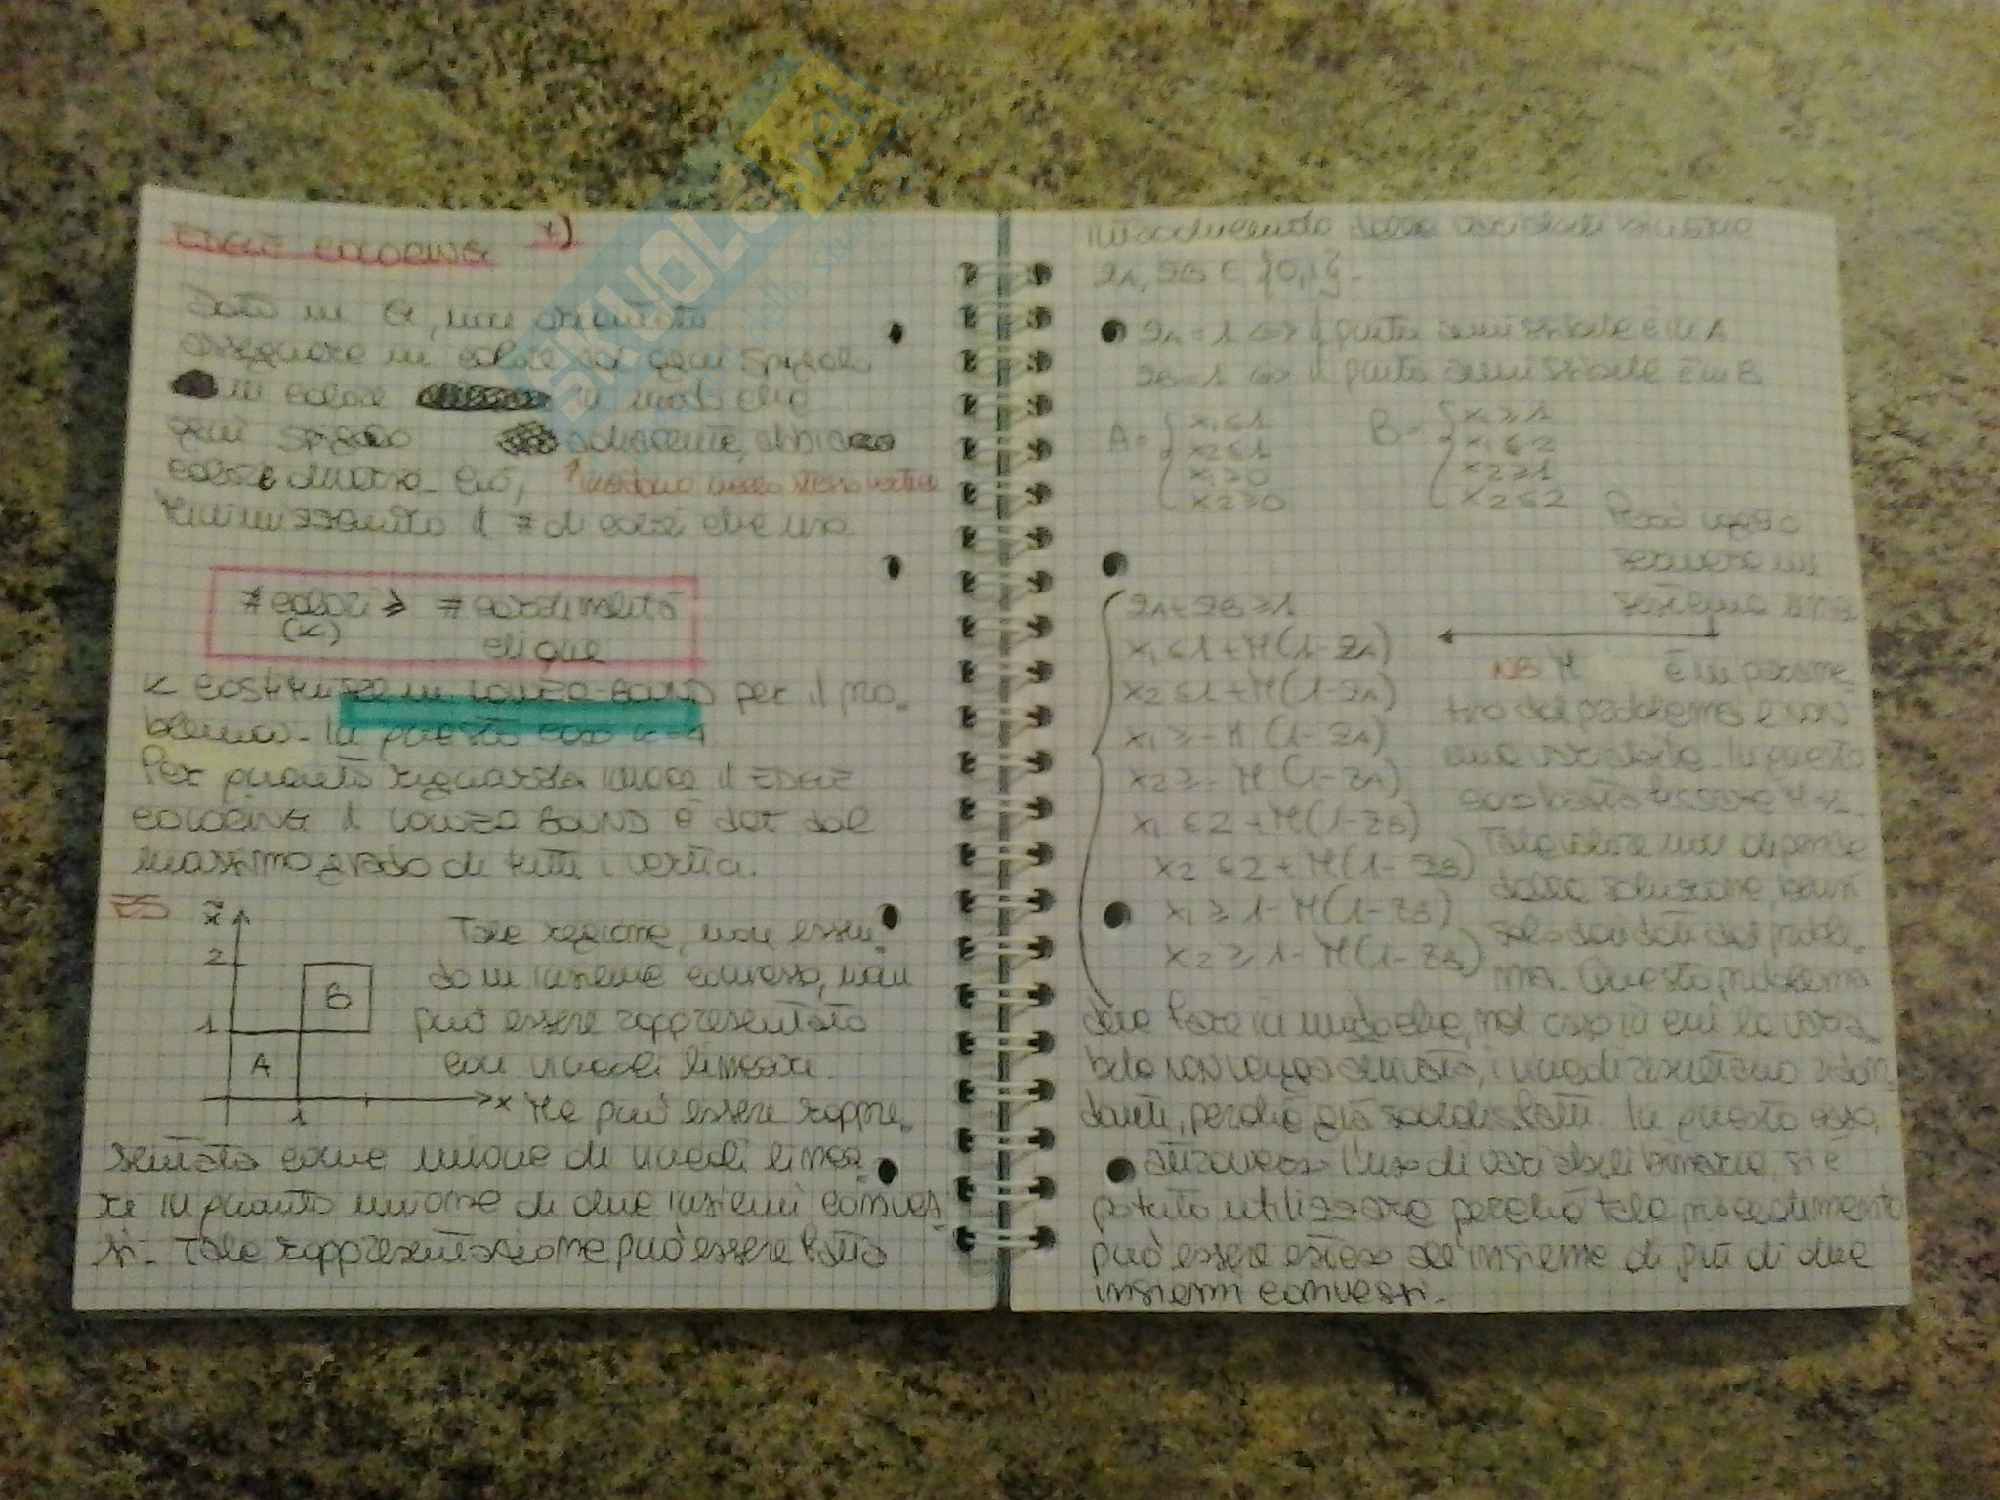 EDGE COLORING *)
Dato un G, non orientato
assegnare un colore ad ogni spigolo,
un colore in modo che
ogni spigolo adiacente, abbiano
colore diverso. Ciò, insistono nello stesso vertice
minimizzando il # di colori che uso
# colori ≥ # cardinalità
(K) clique
K costituisce un LOWER-BOUND per il pro-
blema. In questo caso K=4
Per quanto riguarda invece il EDGE
COLORING il LOWER BOUND è dat dal
massimo grado di tutti i vertici.
ES
x
2
B
1
A
1
x
Tale regione, non essen-
do un insieme convesso, non
può essere rappresentato
con vincoli lineari.
Ma può essere rappre-
sentata come unione di vincoli linea-
ri in quanto unione di due insiemi conves-
si. Tale rappresentazione può essere fatta
introducendo due variabili binarie
zA, zB ∈ {0,1}.
zA=1 <=> il punto ammissibile è in A
zB=1 <=> il punto ammissibile è in B
A = { x1≤1
x2≤1
x1≥0
x2≥0
B = { x1≥1
x1≤2
x2≥1
x2≤2
Posso
scrivere un
sistema
zA+zB≥1
x1≤1+M(1-zA)
x2≤1+M(1-zA)
x1≥-M(1-zA)
x2≥-M(1-zA)
x1≤2+M(1-zB)
x2≤2+M(1-zB)
x1≥1-M(1-zB)
x2≥1-M(1-zB)
NB M è un parame-
tro del problema e non
una variabile. In questo
caso basta fissare
Tale valore non dipende
dalla soluzione, bensì
solo dai dati del proble-
ma. Questo problema
deve fare in modo che, nel caso in cui la varia-
bile non venga attivata, i vincoli risultano ridon-
danti, perché già soddisfatti. In questo caso,
attraverso l'uso di variabili binarie, si è
potuto utilizzare perché tale procedimento
può essere esteso all'insieme di più di due
insiemi convessi.